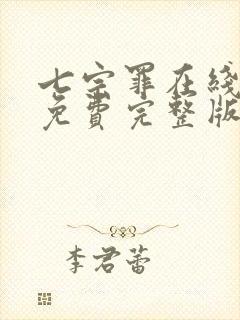 七宗罪在线
免费完整版
李君蕾